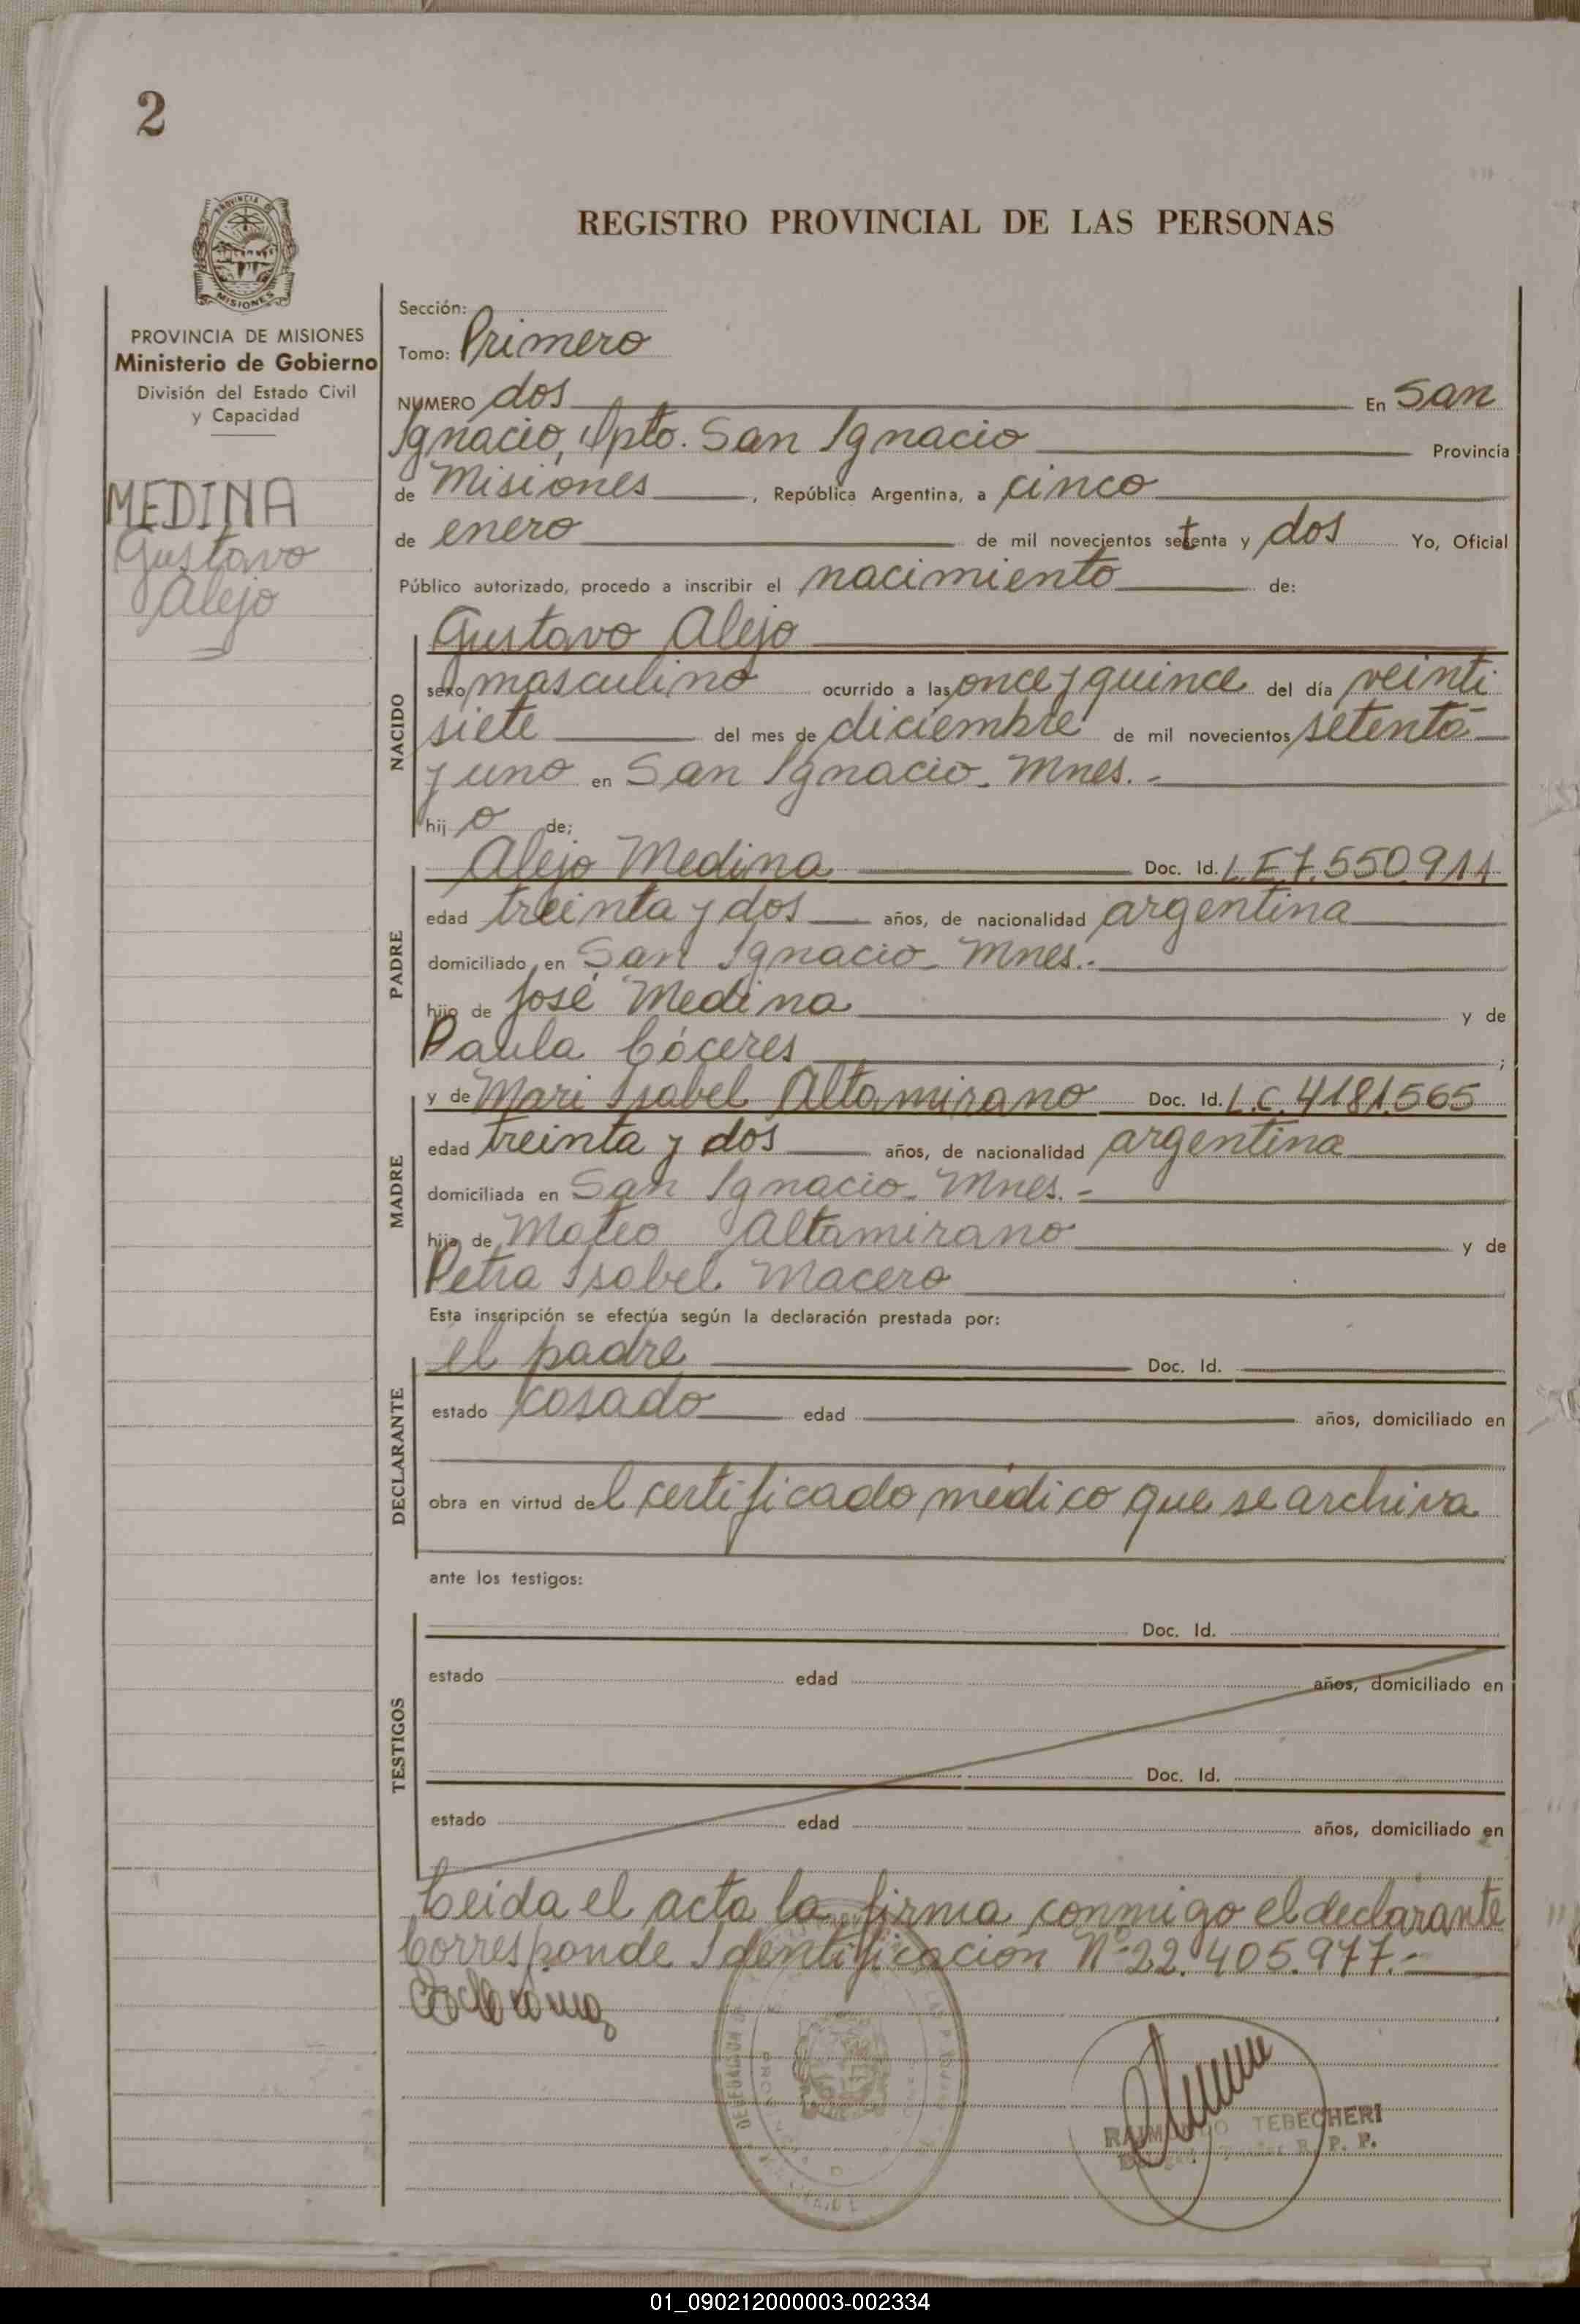 2
PROVINCIA DE
MISIONES
REGISTRO PROVINCIAL DE LAS PERSONAS
PROVINCIA DE MISIONES
Ministerio de Gobierno
División del Estado Civil
y Capacidad
MEDINA
Gustavo
Alejo
Sección:
Tomo: Primero
NUMERO dos En San
Ignacio, Dpto. San Ignacio Provincia
de Misiones, República Argentina, a cinco
de enero de mil novecientos setenta y dos Yo, Oficial
Público autorizado, procedo a inscribir el nacimiento de:
NACIDO
Gustavo Alejo
sexo masculino ocurrido a las once y quince del día veinti
siete del mes de diciembre de mil novecientos setenta
y uno en San Ignacio. Mnes.-
hijo de:
PADRE
Alejo Medina Doc. Id. L.E.7.550.911
edad treinta y dos años, de nacionalidad argentina
domiciliado en San Ignacio. Mnes.-
hijo de José Medina y de
Paula Cáceres ;
MADRE
y de Mari Isabel Altamirano Doc. Id. L.C. 4181.565
edad treinta y dos años, de nacionalidad argentina
domiciliada en San Ignacio. Mnes.-
hija de Mateo Altamirano y de
Petra Isabel Macero
Esta inscripción se efectúa según la declaración prestada por:
DECLARANTE
el padre Doc. Id.
estado casado edad años, domiciliado en
obra en virtud del certificado médico que se archiva
ante los testigos:
TESTIGOS
Doc. Id.
estado edad años, domiciliado en
Doc. Id.
estado edad años, domiciliado en
Leida el acta la firma conmigo el declarante
Corresponde Identificación Nº 22.405.977.-
TEBECHERI
R. P. P.
01_090212000003-002334